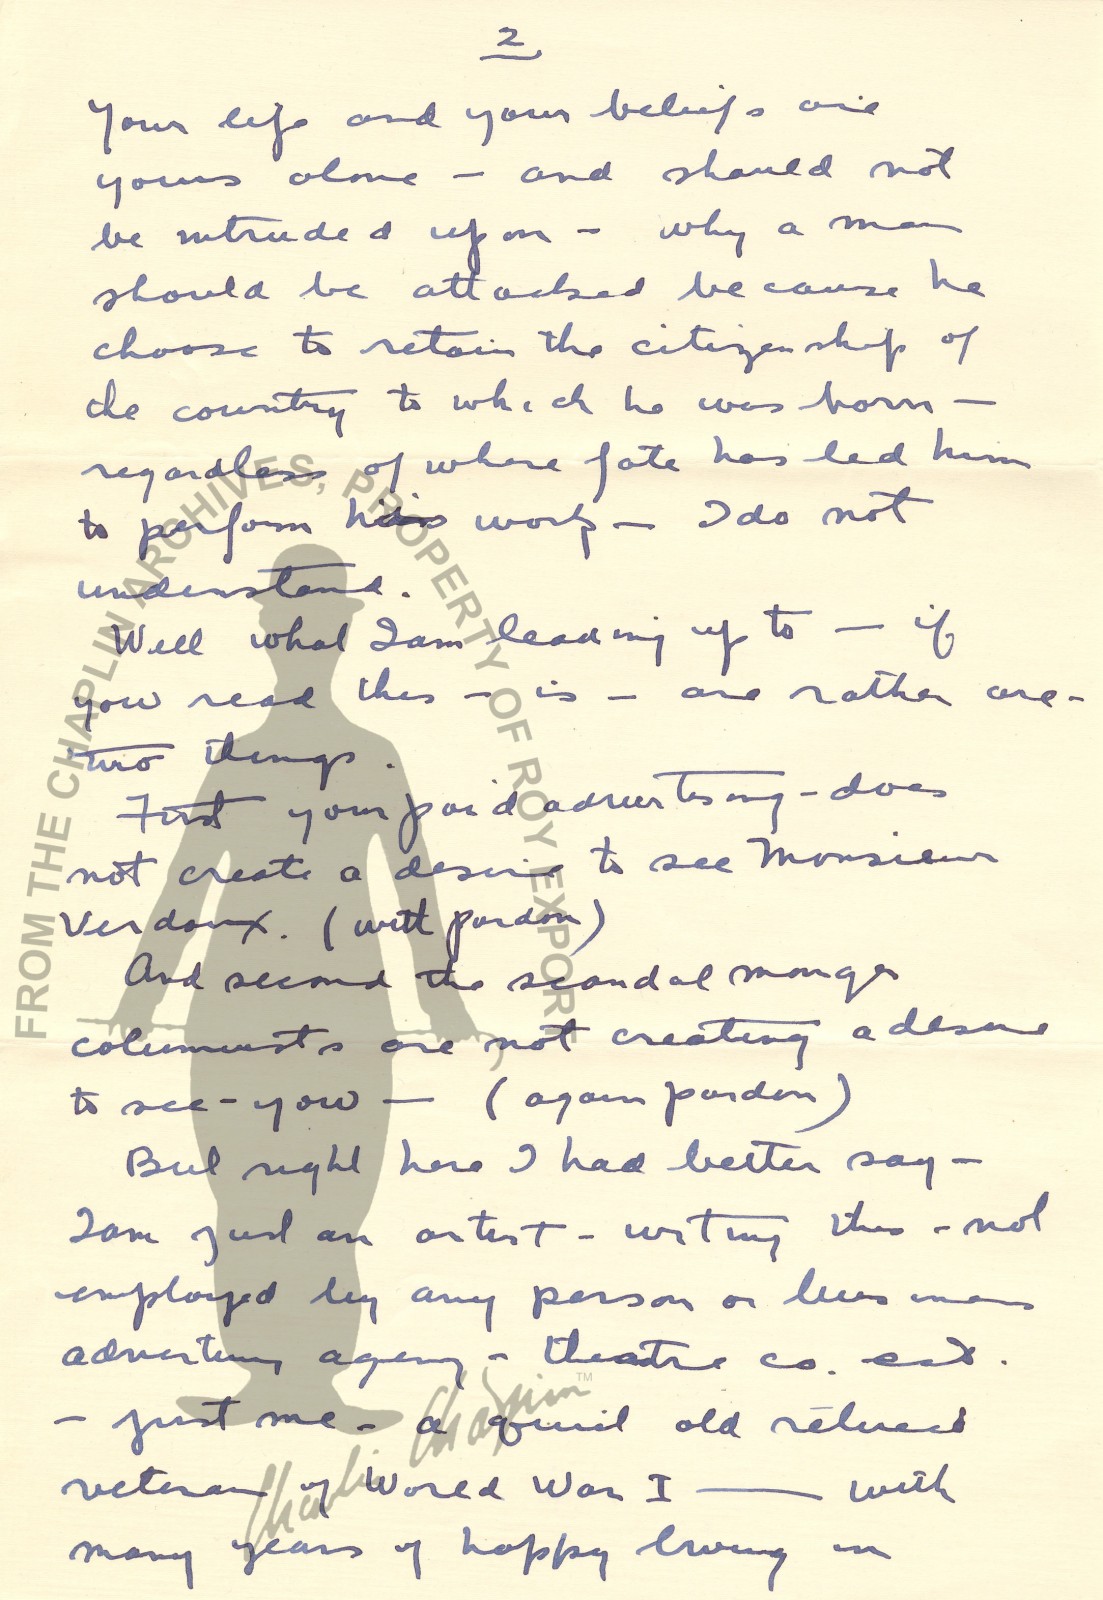 2
Your life and your beliefs are
yours alone — and should not
be intruded upon — why a man
should be attacked because he
choose to retain the citizenship of
the country to which he was born —
regardless of where fate has led him
to perform his work — I do not
understand.
Well what I am leading up to — if
you read this — is — are rather are —
two things.
First your paid advertising — does
not create a desire to see Monsieur
Verdoux. (with pardon)
And second the scandal monger
columnists are not creating a desire
to see — you — (again pardon)
But right here I had better say —
I am just an artist — writing this — not
employed by any person or business
advertising agency — theatre co. ect.
— just me — a quiet old retired
veteran of World War I — with
many years of happy living in
FROM THE CHAPLIN ARCHIVES, PROPERTY OF ROY EXPORT
Charlie Chaplin™